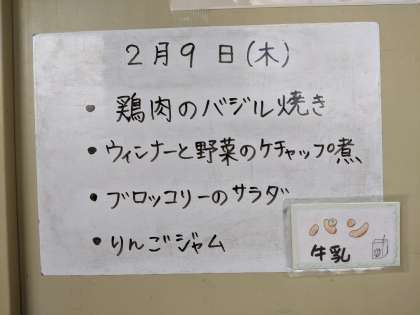 2月9日(木)
• 鶏肉のバジル焼き
• ウィンナーと野菜のケチャップ煮
• ブロッコリーのサラダ
• りんごジャム
パン
牛乳